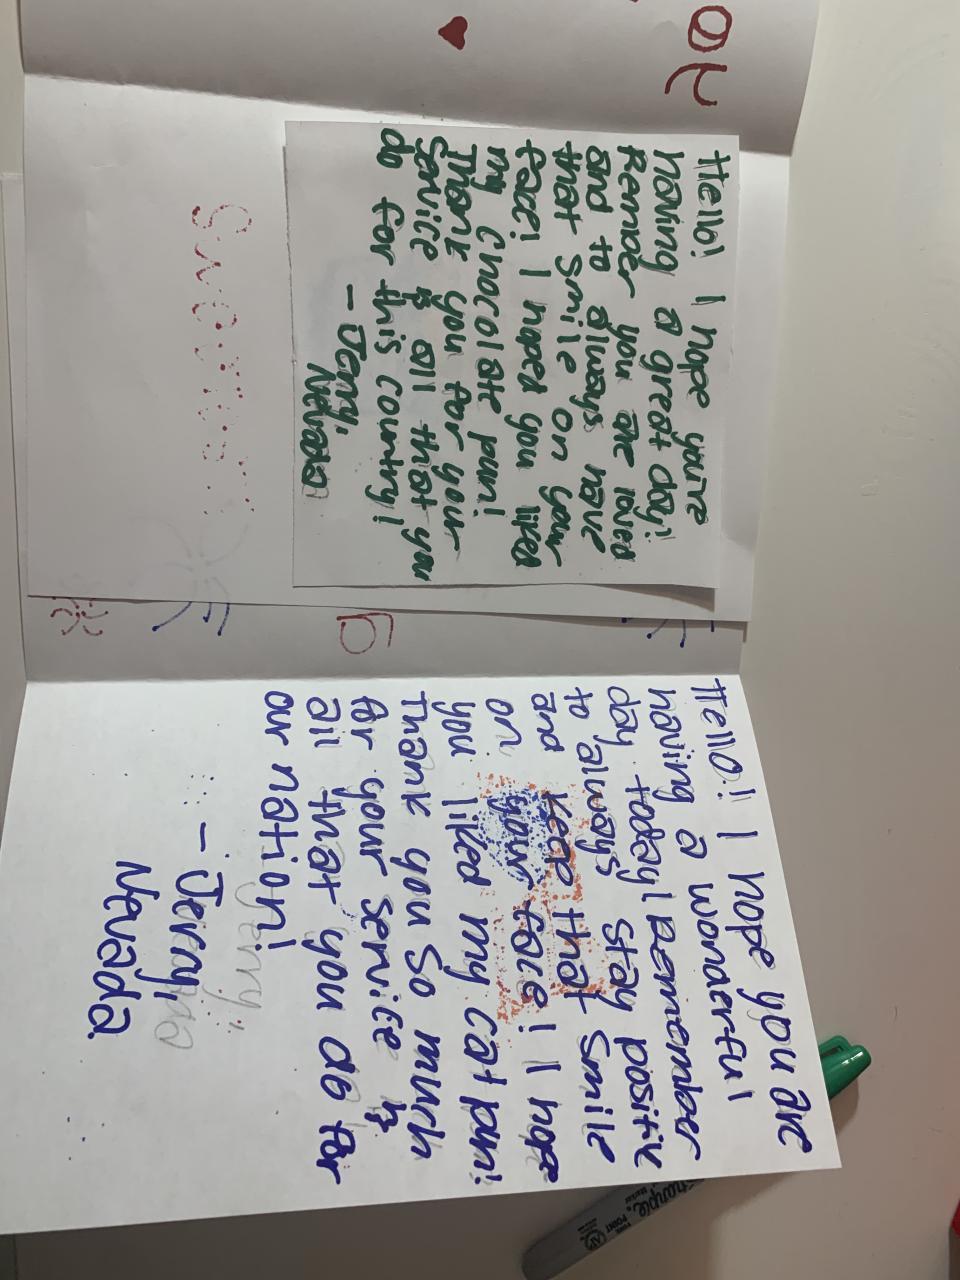 Hello! I hope you're
having a great day!
Remder you are loved
and to always have
that smile on your
face! I hoped you liked
my chocolate pun!
Thank you for your
service & all that you
do for this country!
- Jerry,
Nevada
Hello! I hope you are
having a wonderful
day today! Remember
to always stay positive
and keep that smile
on your face! I hope
you liked my cat pun!
Thank you so much
for your service &
all that you do for
our nation!
- Jerry,
Nevada
Sharpie
FINE POINT
AP